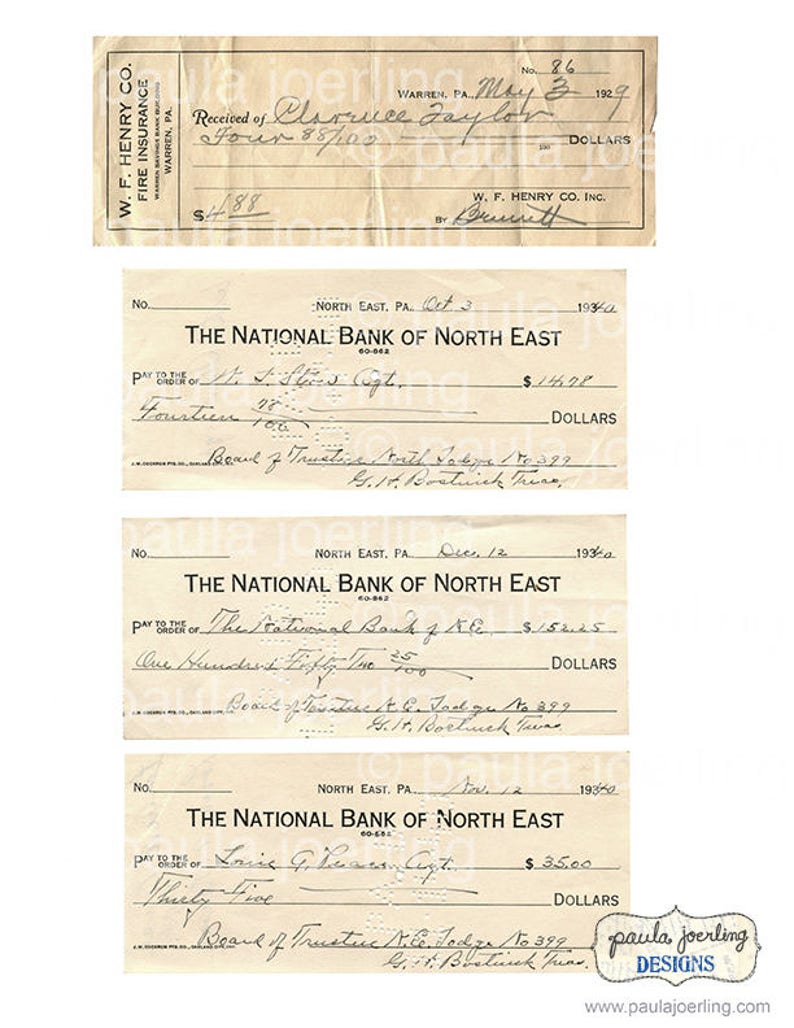 W. F. HENRY CO.
FIRE INSURANCE
WARREN SAVINGS BANK BUILDING
WARREN, PA.
No. 86
WARREN, PA. May 3 1929
Received of Clarence Taylor
Four 88/100 DOLLARS
100
W. F. HENRY CO. INC.
$4 88 BY
No. NORTH EAST, PA. Oct 3 1940
THE NATIONAL BANK OF NORTH EAST
60-862
PAY TO THE ORDER OF Agt. $ 14.78
Fourteen 78/100 DOLLARS
J.W. COCKRUM PTG. CO., OAKLAND CITY, IND.
Board of Trustees North Lodge No 399
G. H. Bostwick Treas.
No. NORTH EAST, PA. Dec. 12 1940
THE NATIONAL BANK OF NORTH EAST
60-862
PAY TO THE ORDER OF The National Bank of N.E. $ 152.25
One Hundred Fifty Two 25/100 DOLLARS
J.W. COCKRUM PTG. CO., OAKLAND CITY, IND.
Board of Trustee N.E. Lodge No 399
G. H. Bostwick Treas.
No. NORTH EAST, PA. Nov. 12 1940
THE NATIONAL BANK OF NORTH EAST
60-862
PAY TO THE ORDER OF Agt. $ 35.00
Thirty Five DOLLARS
J.W. COCKRUM PTG. CO., OAKLAND CITY, IND.
Board of Trustee N.E. Lodge No 399
G. H. Bostwick Treas.
paula joerling
DESIGNS
www.paulajoerling.com
© paula joerling